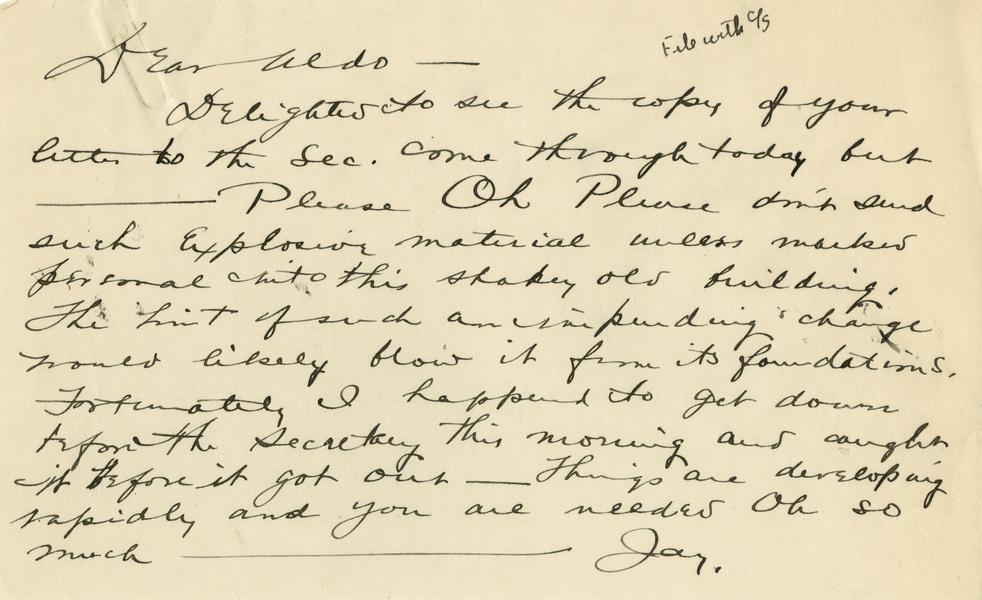 File with C/S
Dear Aldo —
Delighted to see the copy of your
letter to the Sec. come through today but
——— Please Oh Please don't send
such Explosive material unless marked
personal into this shakey old building.
The hint of such an impending change
would likely blow it from its foundations.
Fortunately I happened to get down
before the Secretary this morning and caught
it before it got out — Things are developing
rapidly and you are needed Oh so
much ——— Jay.